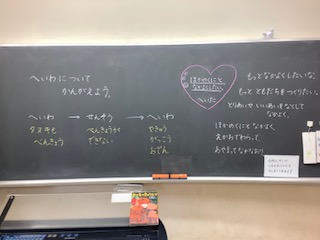 へいわについて
かんがえよう。
へいわ → せんそう → へいわ
べんきょう
べんきょうが
できない
やきゅう
がっこう
おでん
ほかのくにと
なかよくしたい。
へいた
もっとなかよくしたいな。
もっと ともだちをつくりたい。
とりあいや いいあいをなくして
なかよく。
ほかのくにとなかよく。
えがおでわらって。
あやまってなかなおり